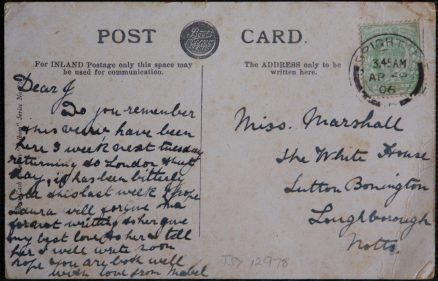 POST CARD.
For INLAND Postage only this space may
be used for communication.
The ADDRESS only to be
written here.
BRIGHTON
3.45 AM
AP 26
06
Dear J
Do you remember
this view we have been
here 3 week next tuesday
returning to London that
day, it has been bitterly
cold this last week I hope
Laura will forgive me
for not writing to her give
my best love to her & tell
her I will write soon
hope you are both well
with love from Mabel
Miss. Marshall
The White House
Sutton Bonington
Loughborough
Notts.
TSY 12978